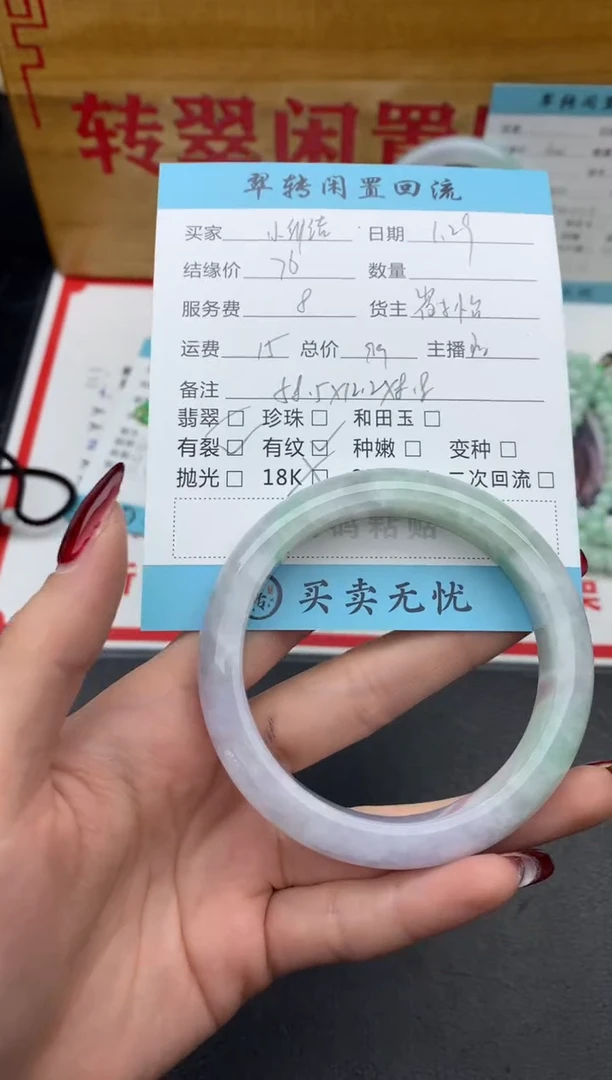 转翠闲置
翠转闲置回流
买家 日期 1.29
结缘价 76 数量
服务费 8 货主
运费 15 总价 99 主播
备注 58.5×12.2×8.8
翡翠□ 珍珠□ 和田玉□
有裂☑ 有纹☑ 种嫩□ 变种□
抛光□ 18K 二次回流□
码粘贴
买卖无忧